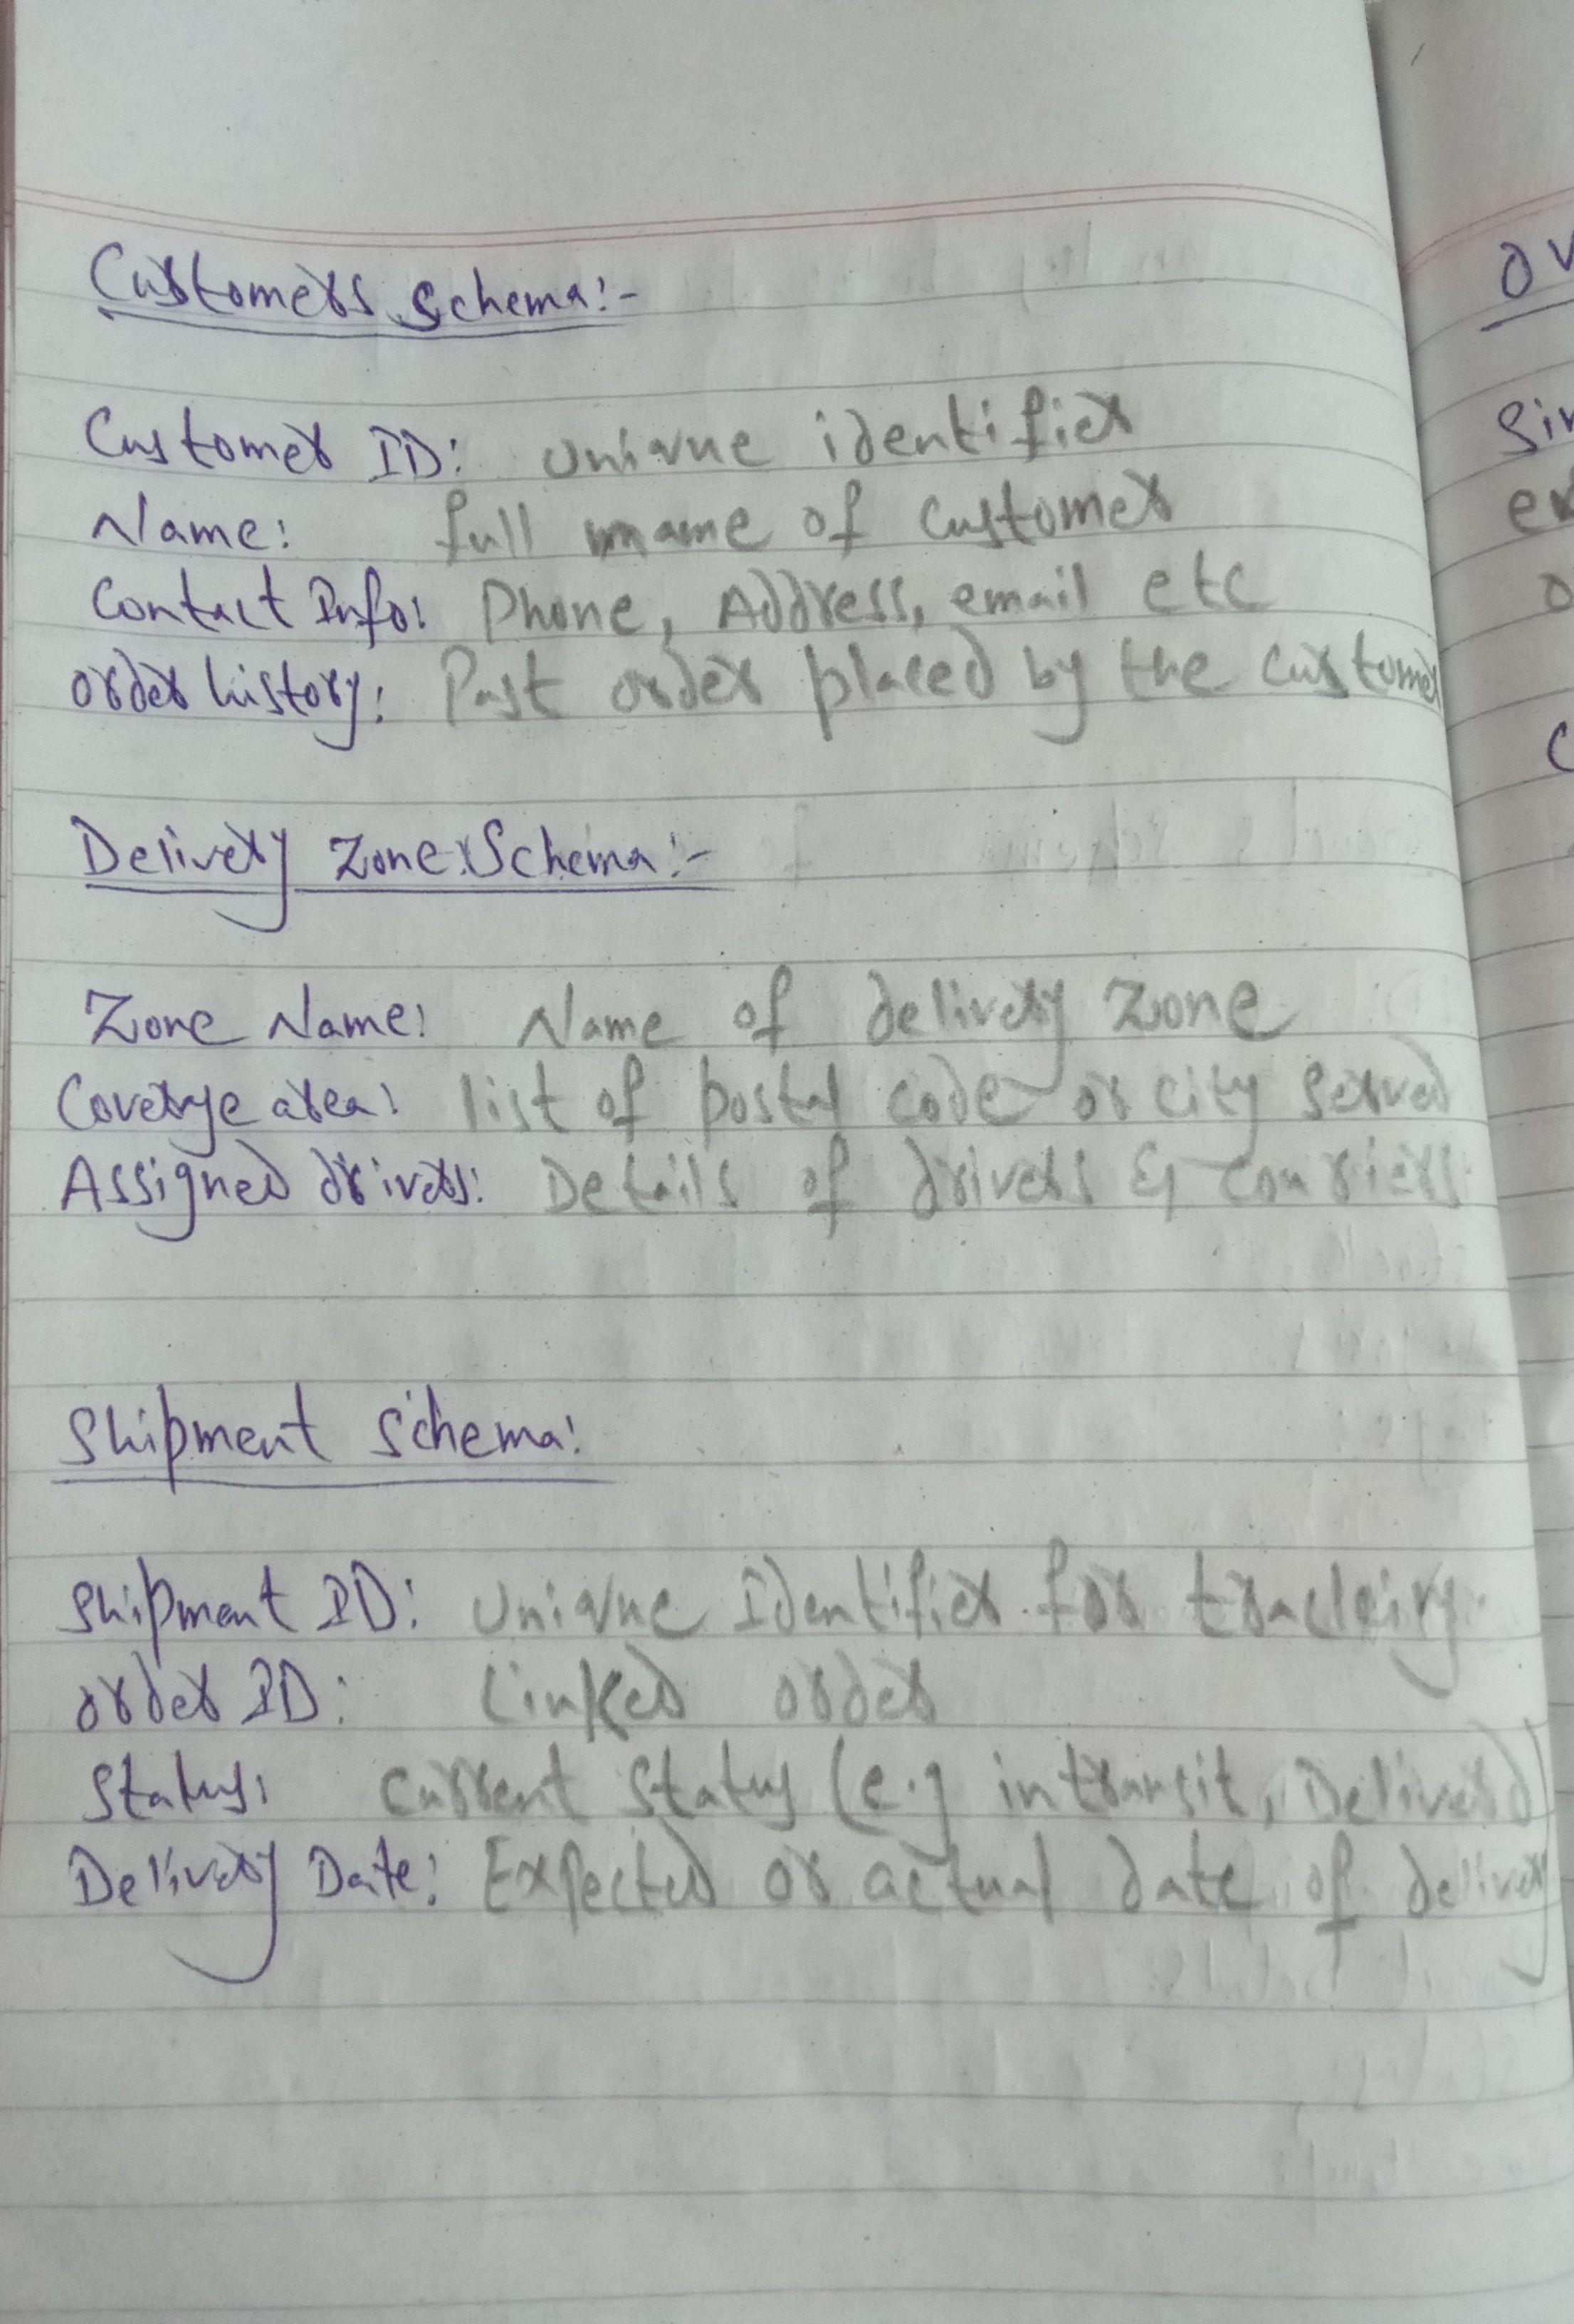 Customers Schema:-
Customer ID: Unique identifier
Name: full name of customer
Contact Info: Phone, Address, email etc
order history: Past order placed by the customer
Delivery Zone Schema:-
Zone Name: Name of delivery zone
Coverage area: list of postal code or city served
Assigned drivers: Details of drivers & couriers
Shipment Schema:
Shipment ID: Unique Identifier for tracking
order ID: Linked order
Status: Current Status (e.g in transit, Delivered)
Delivery Date: Expected or actual date of delivery